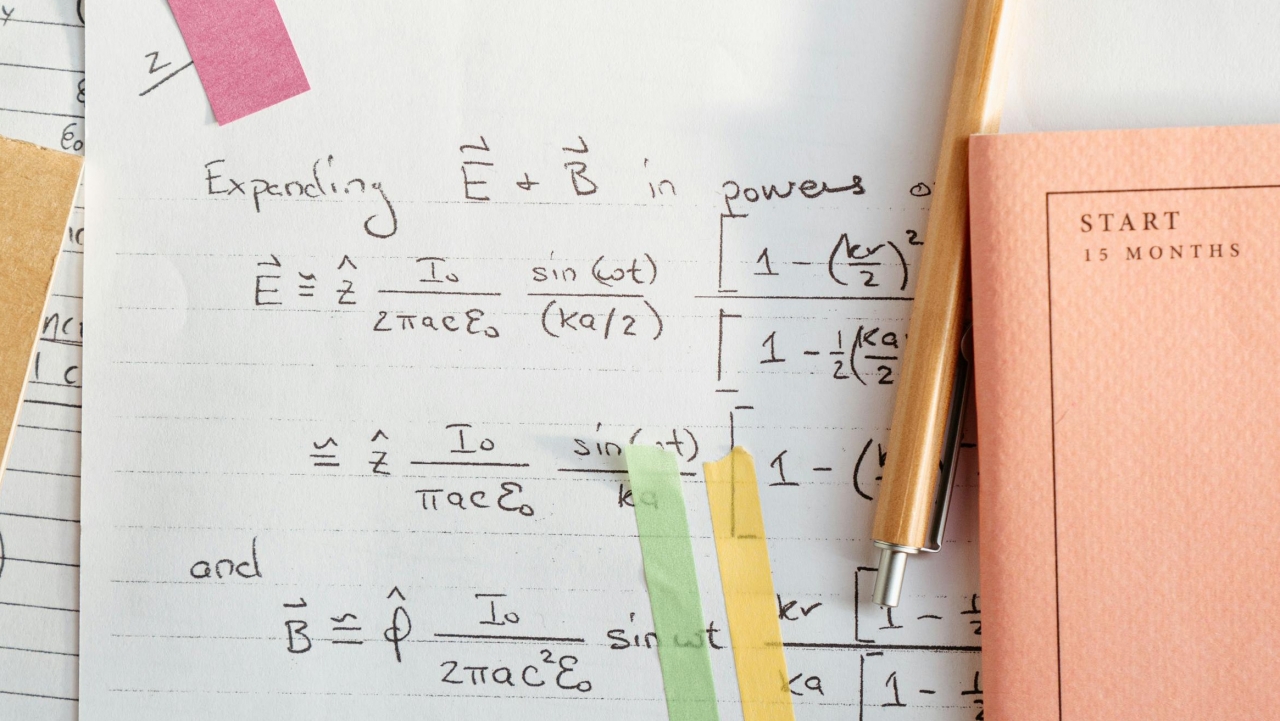 2
Expanding E⃗ + B⃗ in powers
E⃗ ≅ ẑ I₀/(2πacε₀) sin(ωt)/(ka/2) [1 - (kr/2)² / [1 - 1/2(ka/2
≅ ẑ I₀/(πacε₀) sin(ωt)/ka [1 - (
and
B⃗ ≅ φ̂ I₀/(2πac²ε₀) sin ωt kr [1 - 1/2 / ka [1 - 1
START
15 MONTHS